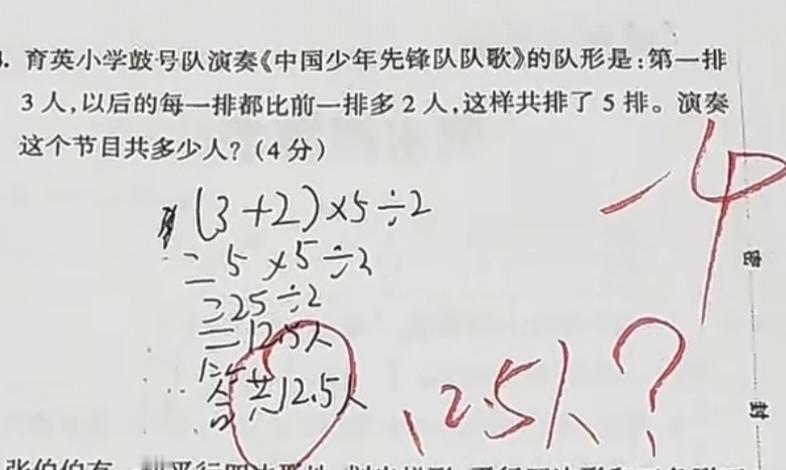 育英小学鼓号队演奏《中国少年先锋队队歌》的队形是:第一排
3 人,以后的每一排都比前一排多 2 人,这样共排了 5 排。演奏
这个节目共多少人?(4 分)
(3+2)×5÷2
=5×5÷2
=25÷2
=12.5人
答共12.5人
-4
12.5人?
密
封